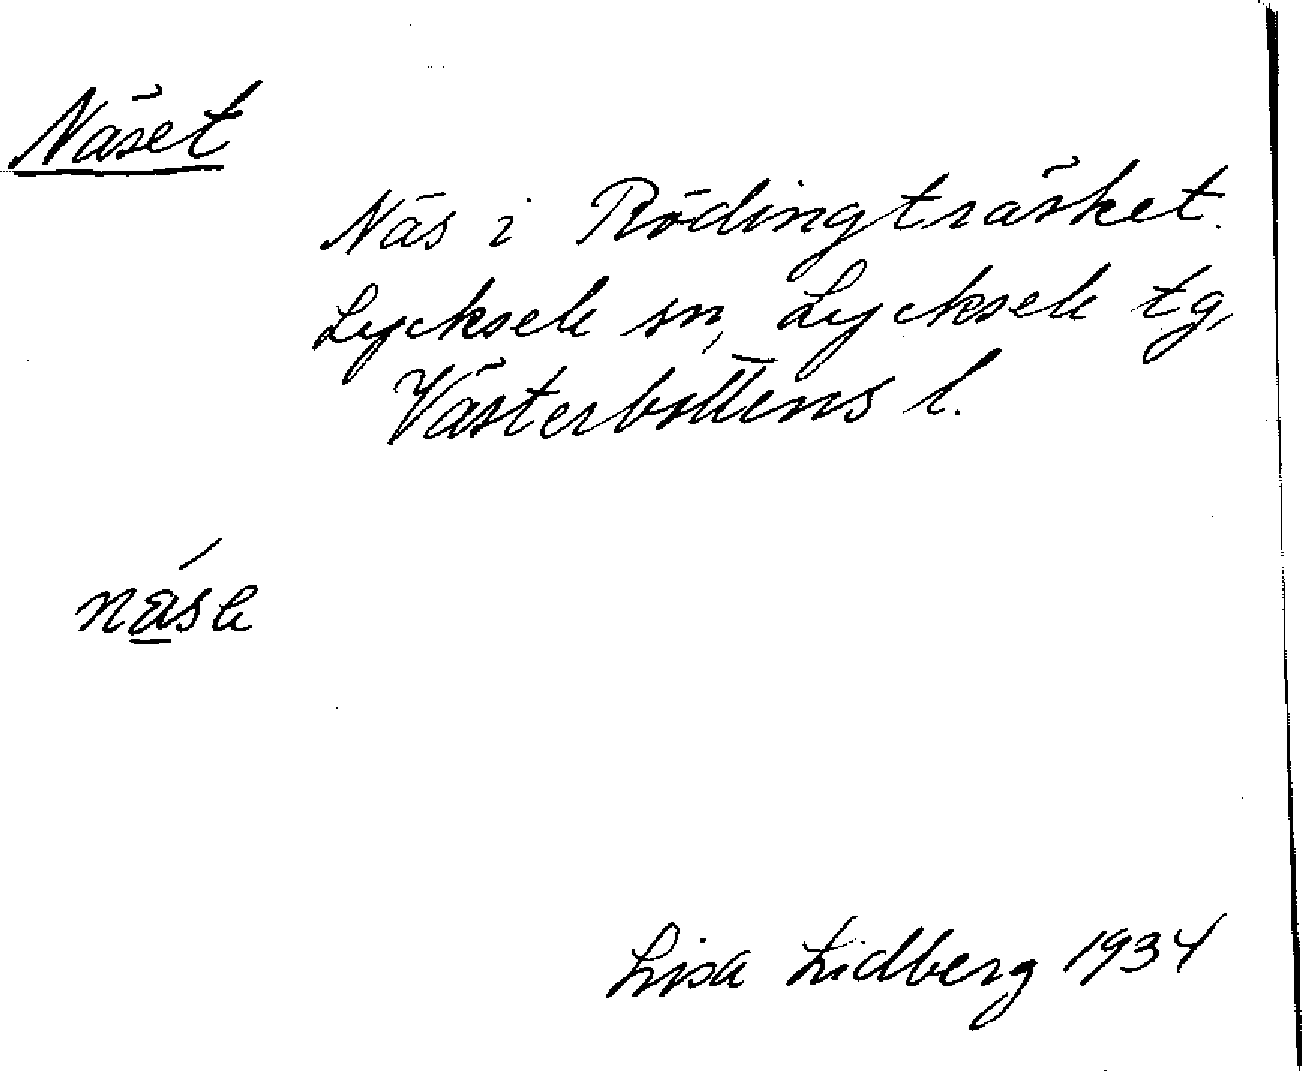 Näset
Näs i Rödingträsket.
Lycksele sn, Lycksele tg,
Västerbottens l.
Lisa Lidberg 1934